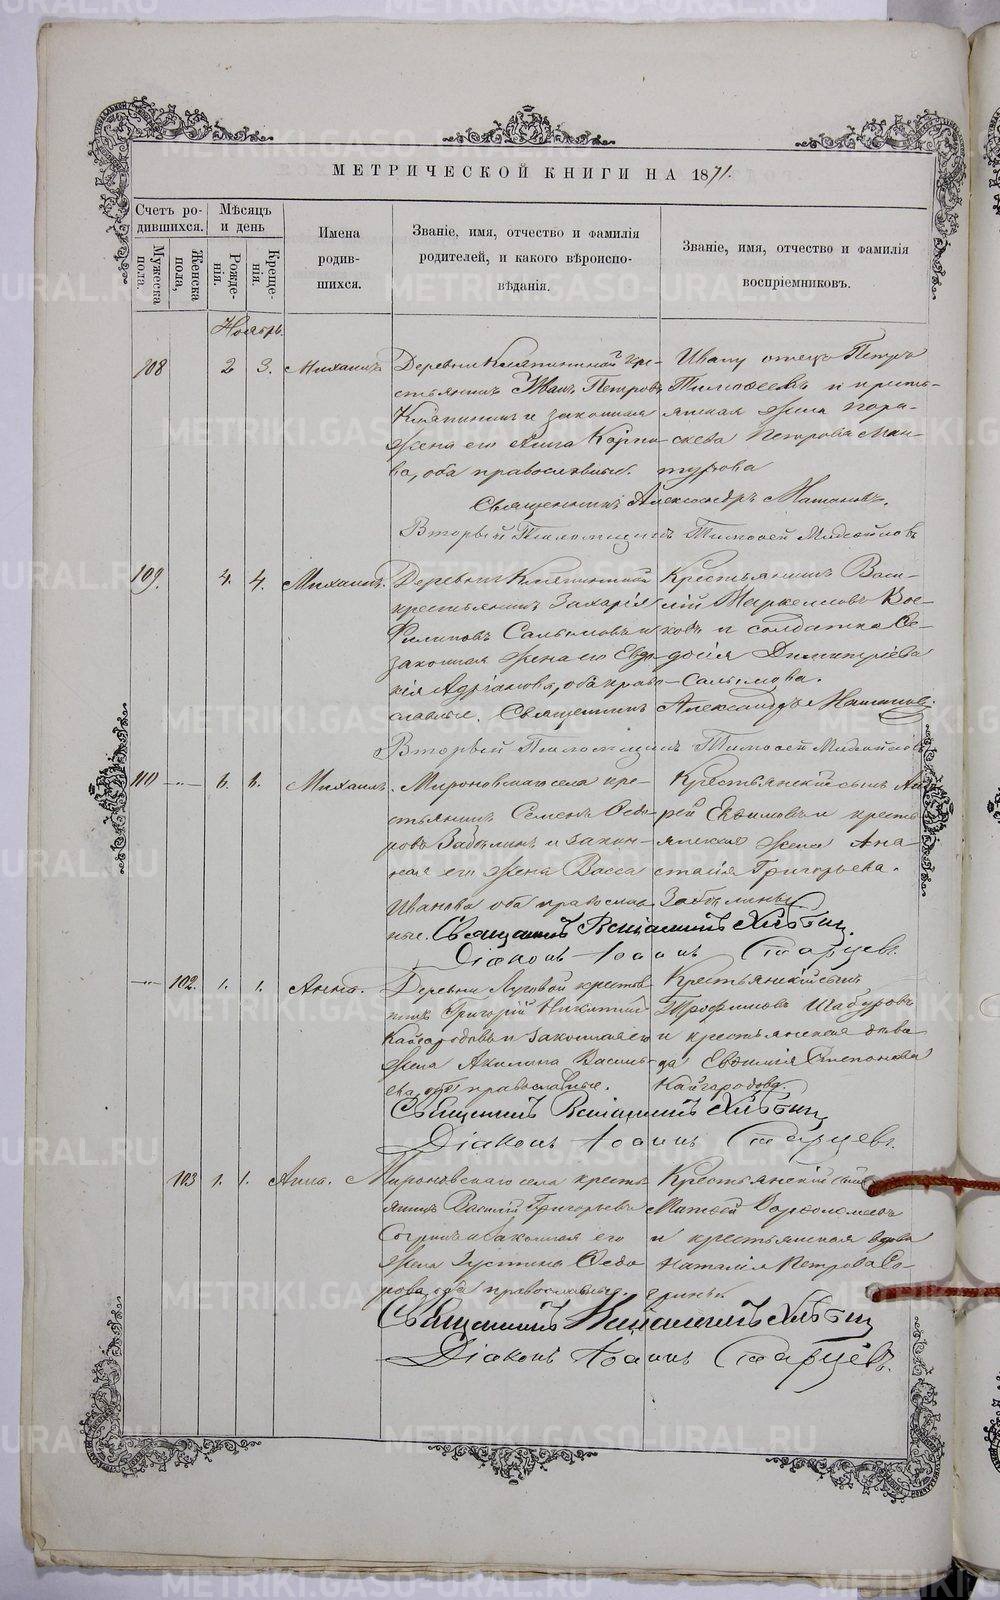 МЕТРИЧЕСКОЙ КНИГИ НА 1871.
Счетъ родившихся.
Мужеска пола.
Женска пола.
Мѣсяцъ и день
Рожденія.
Крещенія.
Имена родившихся.
Званіе, имя, отчество и фамилія родителей, и какого вѣроисповѣданія.
Званіе, имя, отчество и фамилія воспріемниковъ.
Ноябрь.
108 2 3. Михаилъ
Деревни Кляпиной кре-
стьянинъ Иванъ Петровъ
Кляпинъ и законная
жена его Анна Карпо-
ва, оба православные.
Ивану отецъ Петръ
Тимофеевъ и кресть-
янская жена
Петрова Ман-
турова
Священникъ Александръ
Вторый Псаломщикъ Тимофей
109. 4. 4. Михаилъ.
Деревни Кляпиной
крестьянинъ Захарія
Филиповъ и
законная жена его Евдо-
кія Адріанова, оба право-
славные.
Крестьянинъ Васи-
лій Маркеловъ
и солдатка
Димитріева
Священникъ Александръ
Вторый Псаломщикъ Тимофей
110 6. 6. Михаилъ.
Мироновскаго села кре-
стьянинъ Семенъ Ѳедо-
ровъ Забѣлинъ и закон-
ная его жена Васса
Иванова оба православ-
ные.
Крестьянскій сынъ Анд-
рей Евфимовъ и кресть-
янская жена Ана-
стасія Григорьева
Забѣлины
Священникъ Веніаминъ Хлѣбинъ
Діаконъ Іоаннъ Старцевъ.
102. 1. 1. Анна.
Деревни Луговой крестьян-
инъ Григорій Никитинъ
Кайгородовъ и законная его
жена Акилина Василь-
ева, оба православные.
Крестьянскій сынъ
Трофимовъ Шабуровъ
и крестьянская дѣви-
ца Евфимія Степанова
Кайгородова.
Священникъ Веніаминъ Хлѣбинъ
Діаконъ Іоаннъ Старцевъ.
103 1. 1. Анна.
Мироновскаго села кресть-
янинъ Василій Григорьевъ
Согринъ и законная его
жена Іустина Ѳедо-
рова, оба православные.
Крестьянскій сынъ
Матвей Варфоломеевъ
и крестьянская вдова
Наталія Петрова Со-
грины.
Священникъ Веніаминъ Хлѣбинъ
Діаконъ Іоаннъ Старцевъ.
METRIKI.GASO-URAL.RU